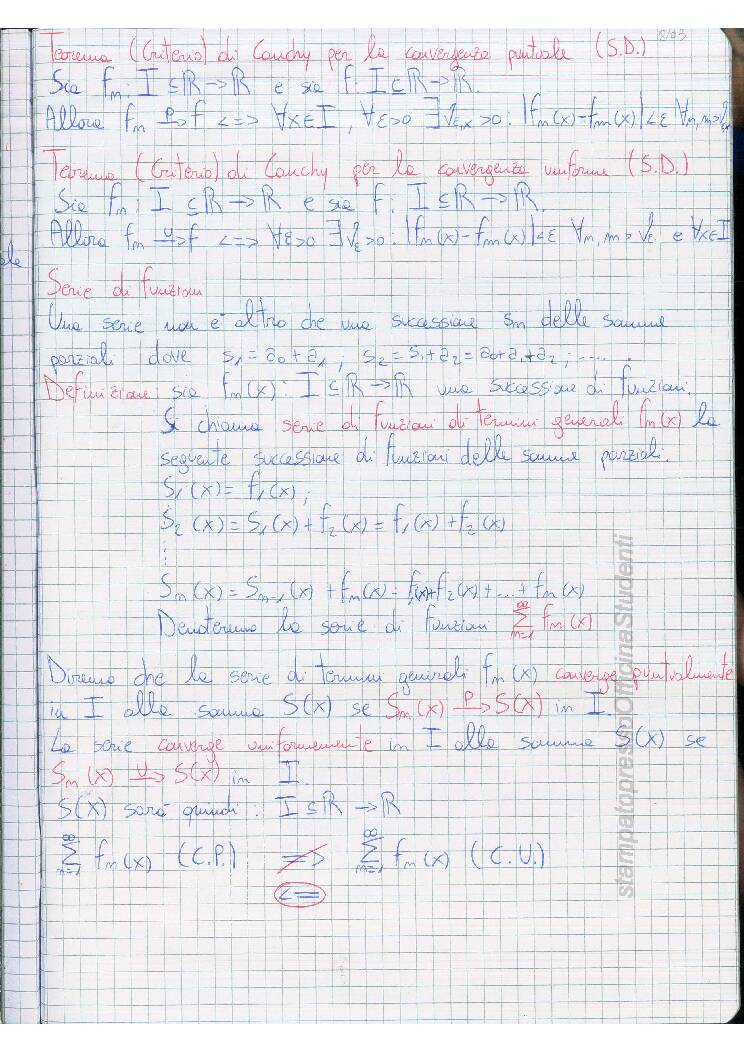 8/03
Teorema (Criterio) di Cauchy per la convergenza puntuale (S.D.)
Sia fn: I ⊆ ℝ → ℝ e sia f: I ⊆ ℝ → ℝ.
Allora fn –P→ f <=> ∀x∈I, ∀ε>0 ∃ νε,x >0: |fn(x)-fm(x)|<ε ∀n,m>νε,x
Teorema (Criterio) di Cauchy per la convergenza uniforme (S.D.)
Sia fn: I ⊆ ℝ → ℝ e sia f: I ⊆ ℝ → ℝ.
Allora fn –U→ f <=> ∀ε>0 ∃ νε>0: |fn(x)-fm(x)|<ε ∀n,m>νε e ∀x∈I
Serie di funzioni
Una serie non è altro che una successione sn delle somme
parziali dove s1 = a0+a1; s2 = s1+a2 = a0+a1+a2; .....
Definizione: sia fn(x): I ⊆ ℝ → ℝ una successione di funzioni.
Si chiama serie di funzioni di termini generali fn(x) la
seguente successione di funzioni delle somme parziali.
S1(x) = f1(x);
S2(x) = S1(x) + f2(x) = f1(x) + f2(x)
⋮
Sn(x) = Sn-1(x) + fn(x) = f1(x)+f2(x)+...+fn(x)
Denoteremo la serie di funzioni ∑n=1∞ fn(x)
Diremo che la serie di termini generali fn(x) converge puntualmente
in I alla somma S(x) se Sn(x) –P→ S(x) in I.
La serie converge uniformemente in I alla somma S(x) se
Sn(x) –U→ S(x) in I.
S(x) sarà quindi: I ⊆ ℝ → ℝ
∑n=1∞ fn(x) (C.P.) ≠> ∑n=1∞ fn(x) (C.U.)
<=
stampatopressoOfficinaStudenti